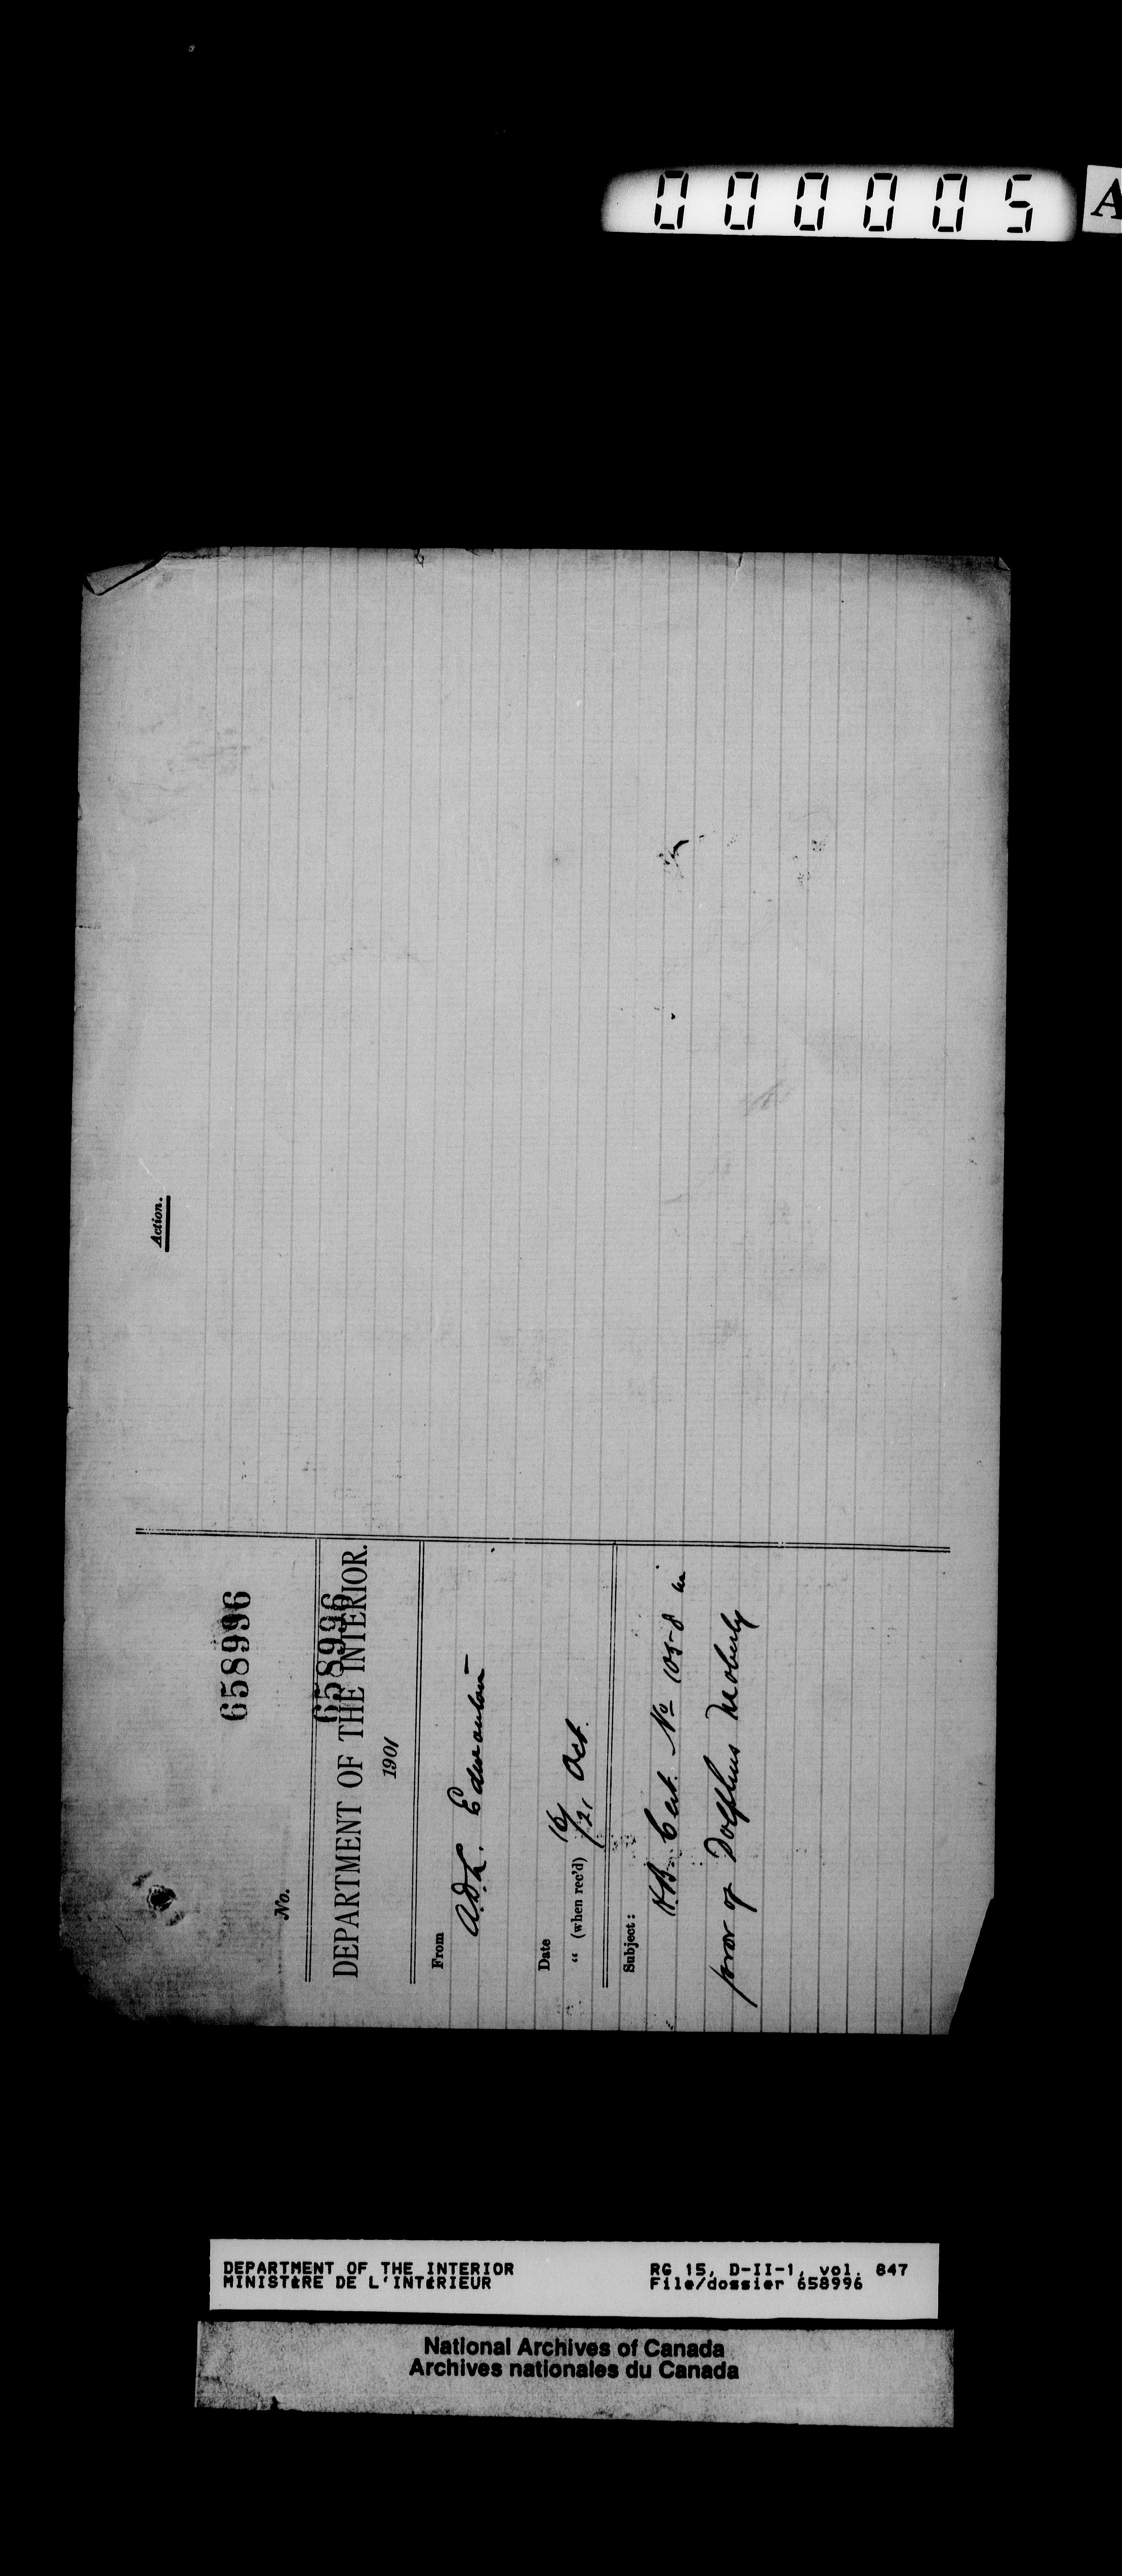 000005
A
Action.
658996
No.
658996
DEPARTMENT OF THE INTERIOR.
1901
From
A.D.L. Edmonton
Date 16/
" (when rec'd) /21 Oct.
Subject:
H.B. Cert. No 1058 in
favor of Dolphus Moberly
DEPARTMENT OF THE INTERIOR
MINISTÈRE DE L'INTÉRIEUR
RG 15, D-II-1, vol. 847
File/dossier 658996
National Archives of Canada
Archives nationales du Canada